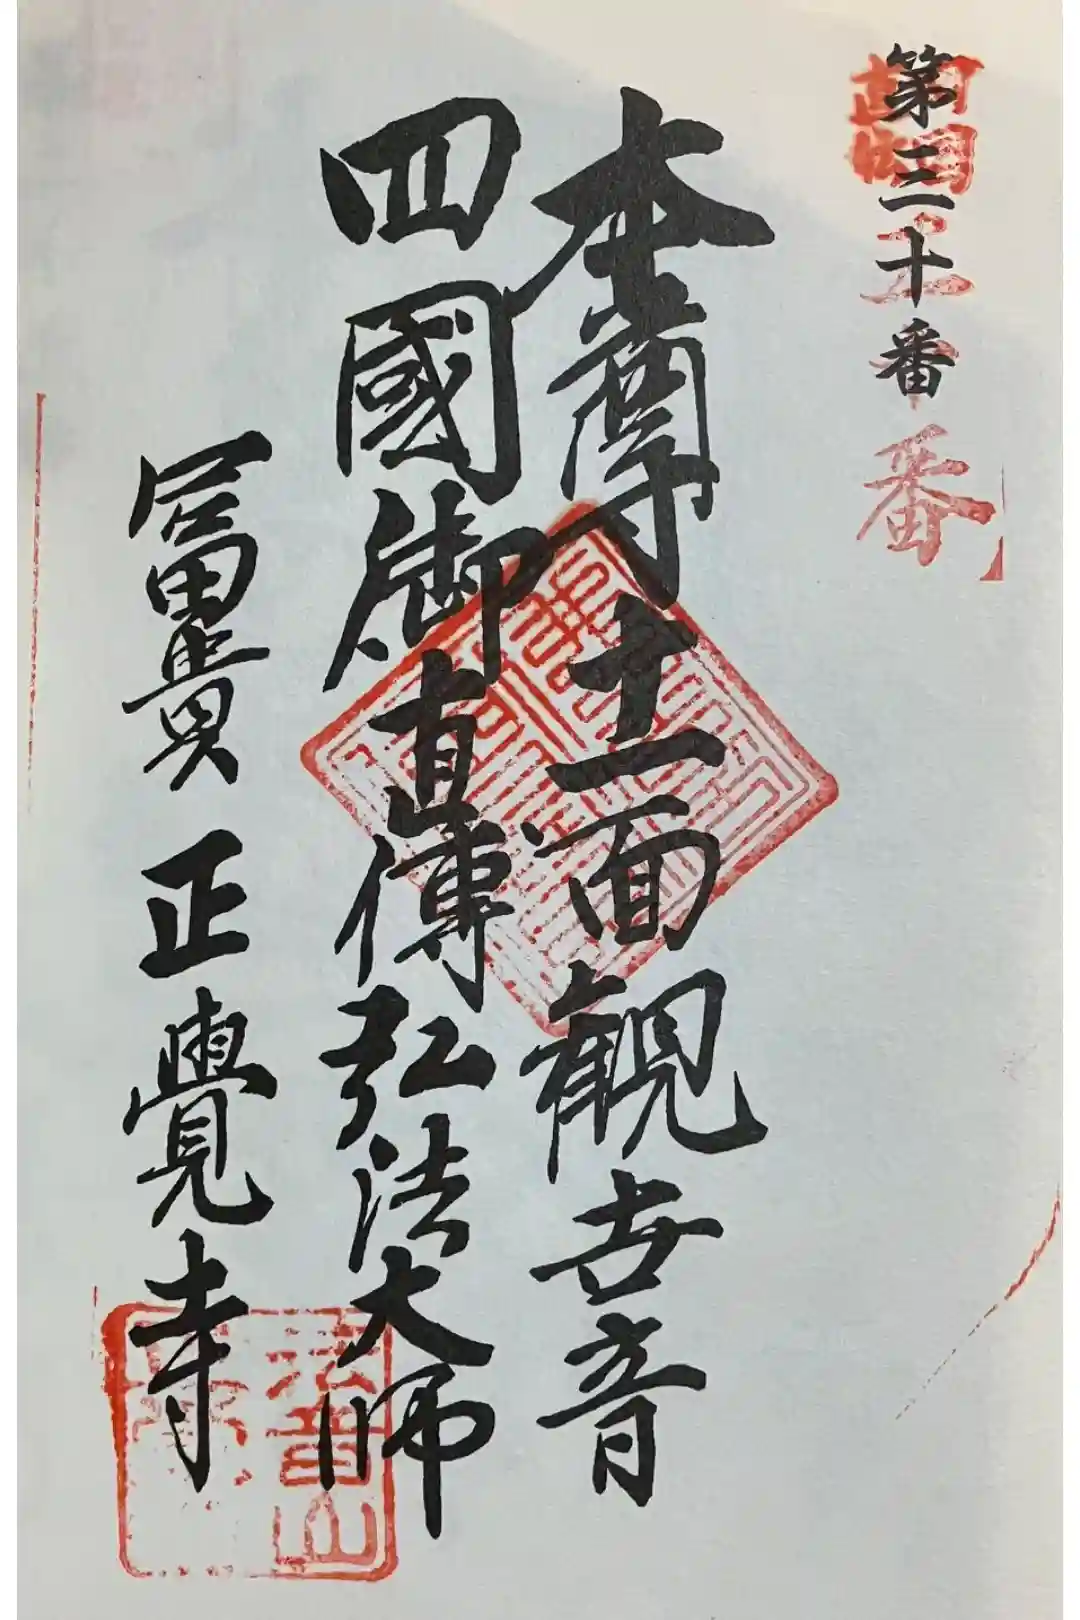 第三十番
本尊十一面観世音
四國御直傳弘法大師
冨貴 正覺寺
番
法音山